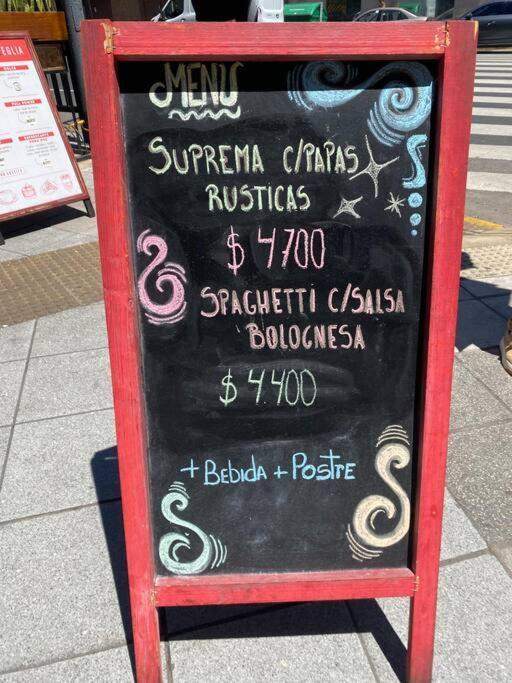 MENÚ
SUPREMA C/PAPAS
RUSTICAS
$ 4700
SPAGHETTI C/SALSA
BOLOGNESA
$ 4.400
+ BEBIDA + POSTRE
EGLIA